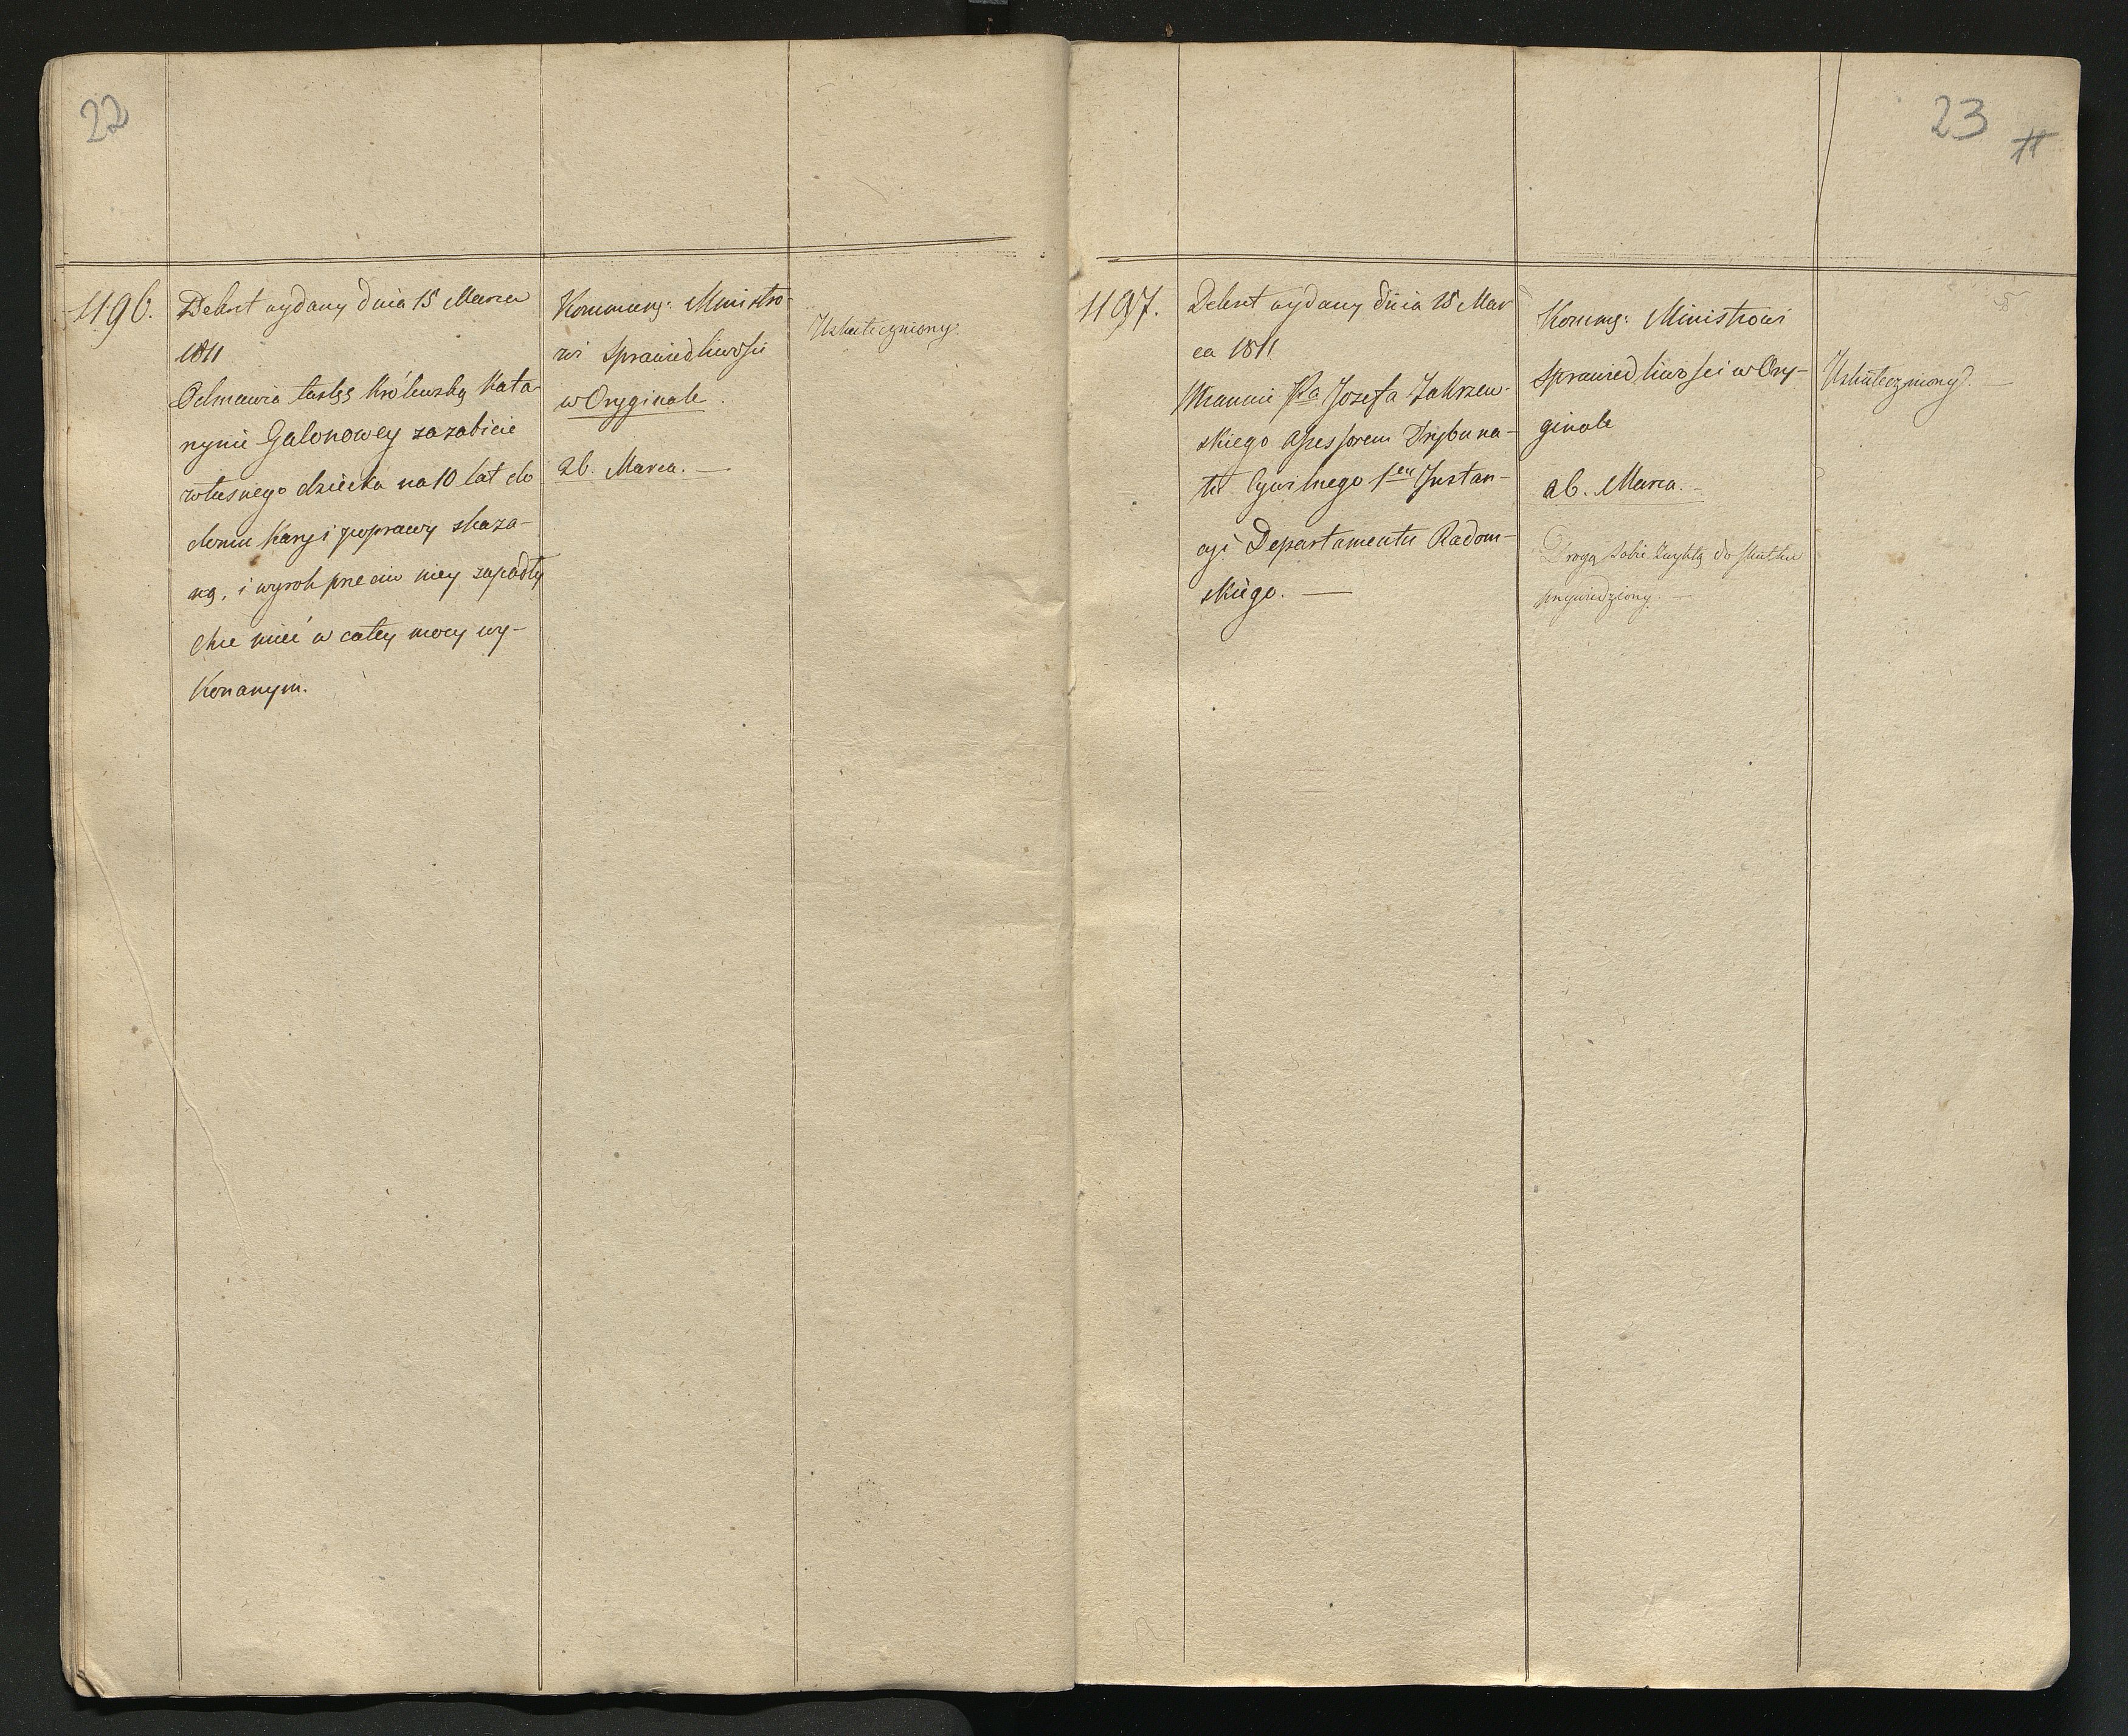 22
1196.
Dekret wydany dnia 15 Marca
1811
Odmawia łaskę Królewską Kata-
rzynie Galonowey za zabicie
własnego dziecka na 10 lat do
domu kary i poprawy skaza-
ną, i wyrok przeciw niey zapadły
chce mieć w całey mocy wy-
konanym.
Kommuny: Ministro-
wi Sprawiedliwości
w Oryginale.
26. Marca. —
Uskuteczniony.
23
11
1197.
Dekret wydany dnia 15 Mar
ca 1811
Mianuie Józefa Zakrzew-
skiego Assessorem Trybuna-
łu Cywilnego Instan-
cyi Departamentu Radom-
skiego. —
Kommuny: Ministrowi
Sprawiedliwości w Ory-
ginale
26. Marca. —
Drogą sobie zwykłą do skutku
przywiedziony. —
Uskuteczniony. —